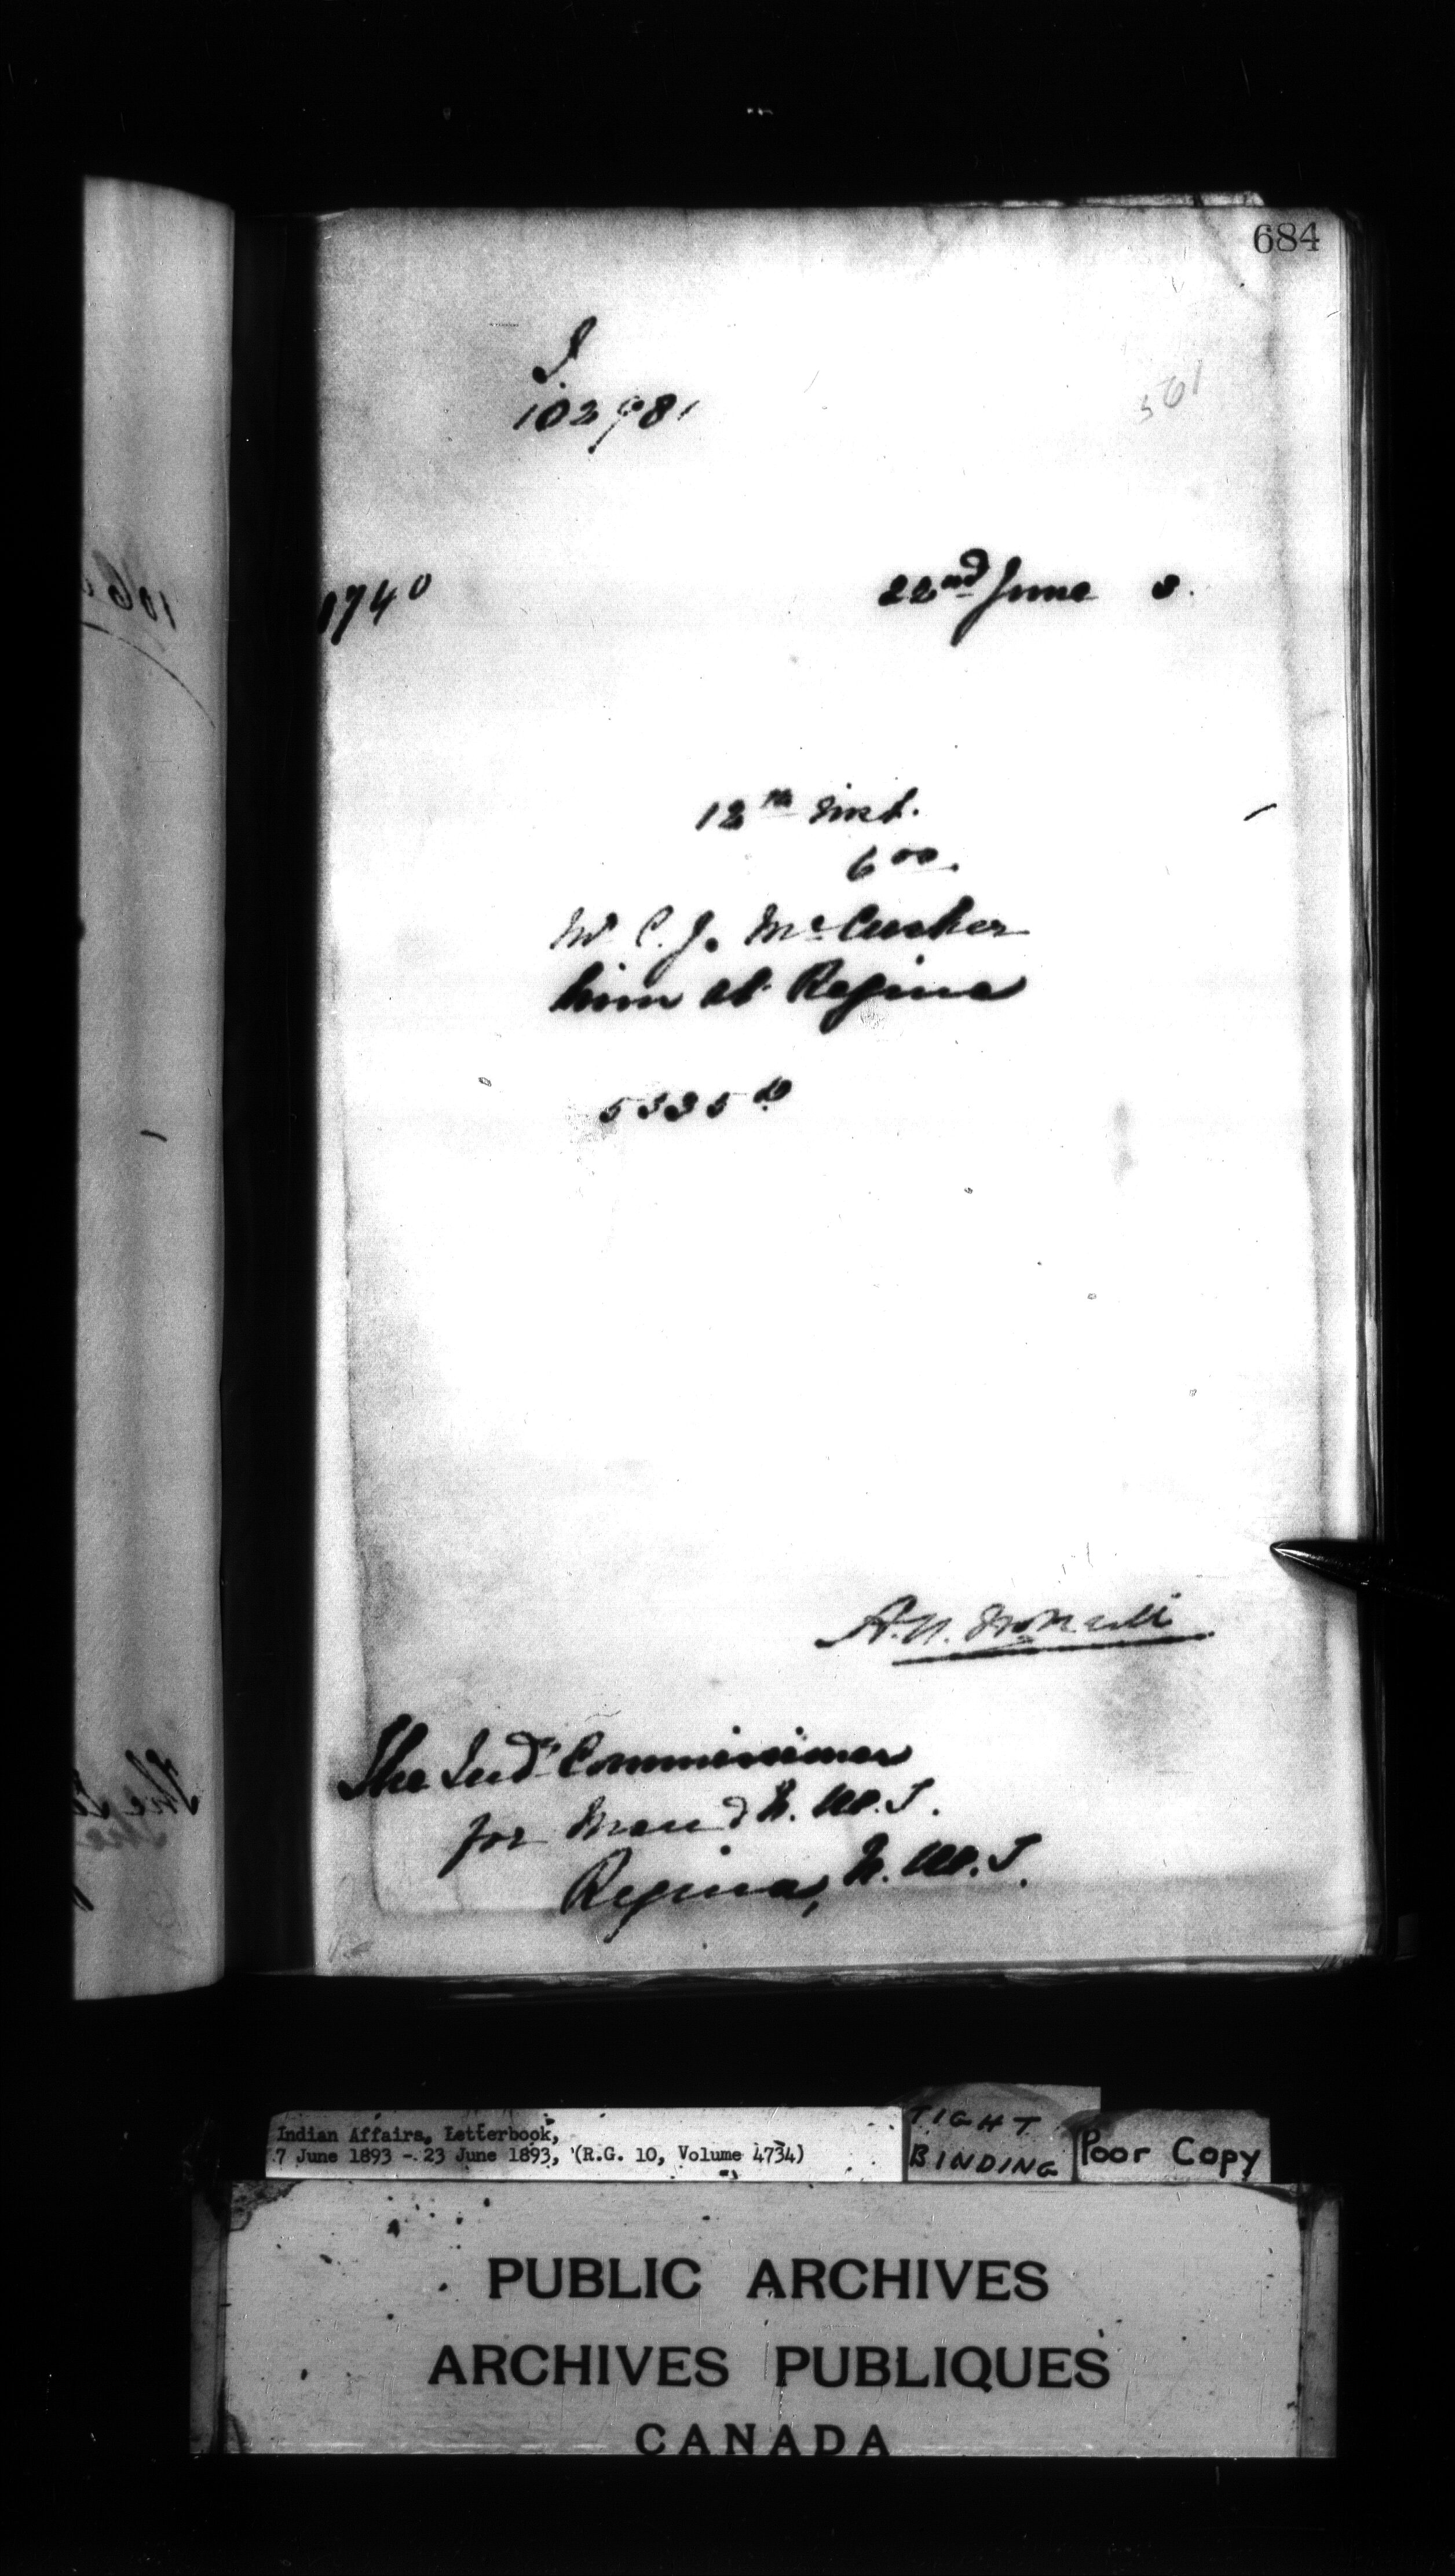 684
561
102981
1740
22nd June 3.
12th inst.
6 00.
Mr C. J. McCusker
him at Regina
5335
The Ind. Commissioner
for Man & N. W. T.
Regina, N. W. T.
Indian Affairs, Letterbook,
7 June 1893 - 23 June 1893, (R.G. 10, Volume 4734)
TIGHT
BINDING
Poor Copy
PUBLIC ARCHIVES
ARCHIVES PUBLIQUES
CANADA